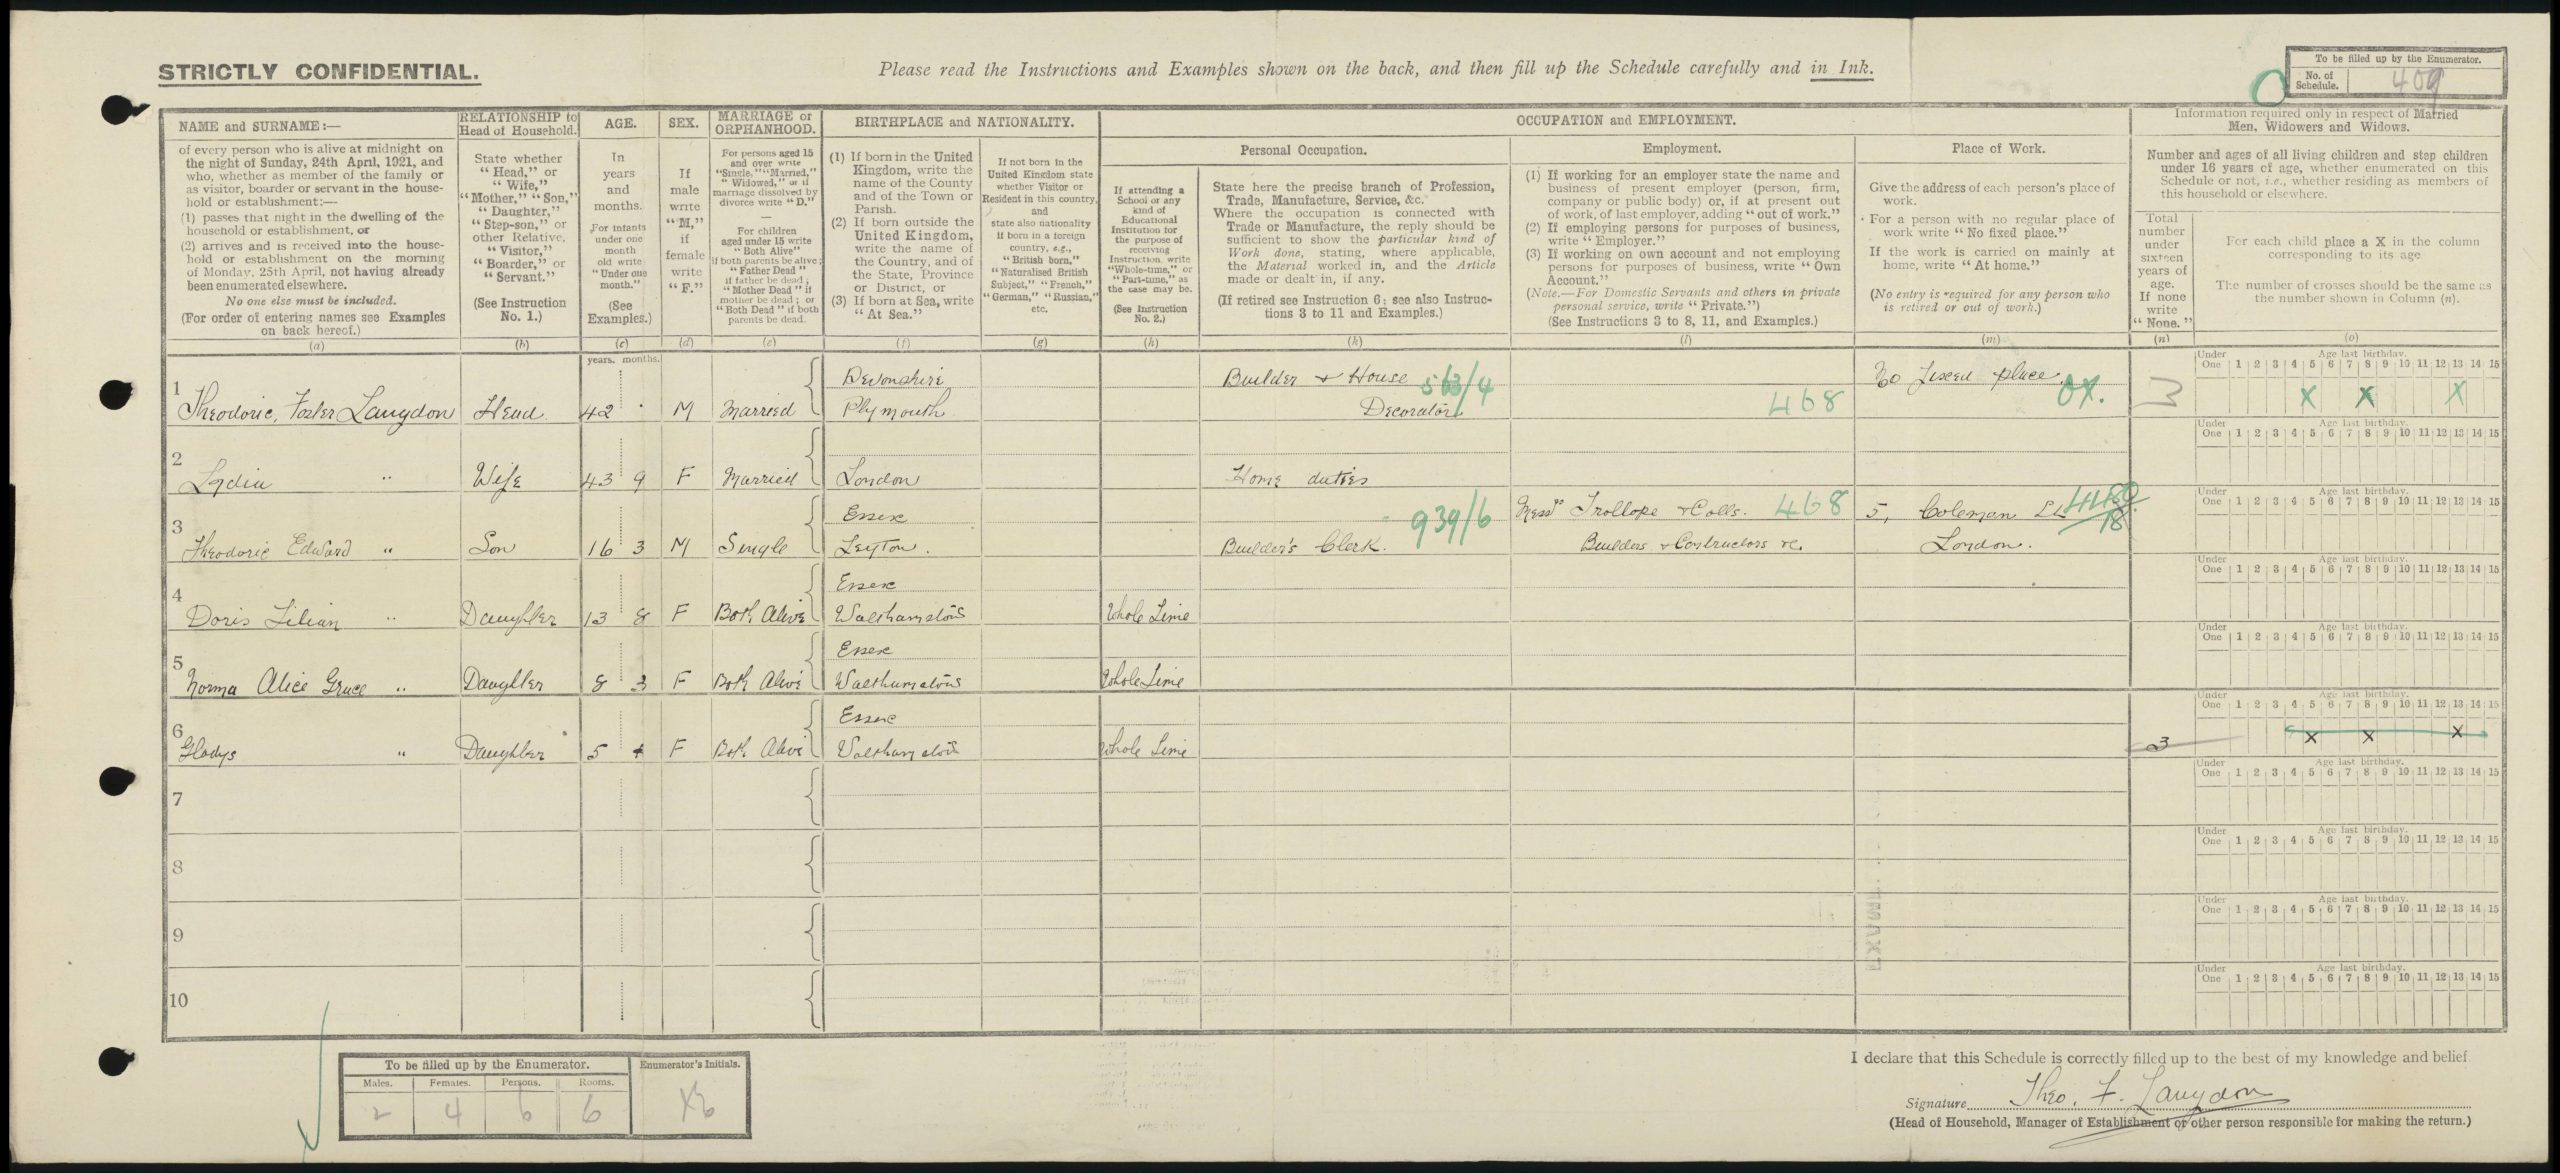 STRICTLY CONFIDENTIAL.
Please read the Instructions and Examples shown on the back, and then fill up the Schedule carefully and in Ink.
To be filled up by the Enumerator.
No. of Schedule. 409
NAME and SURNAME:—
of every person who is alive at midnight on
the night of Sunday, 24th April, 1921, and
who, whether as member of the family or
as visitor, boarder or servant in the house-
hold or establishment:—
(1) passes that night in the dwelling of the
household or establishment, or
(2) arrives and is received into the house-
hold or establishment on the morning
of Monday, 25th April, not having already
been enumerated elsewhere.
No one else must be included.
(For order of entering names see Examples
on back hereof.)
(a)
RELATIONSHIP to
Head of Household.
State whether
"Head," or
"Wife,"
"Mother," "Son,"
"Daughter,"
"Step-son," or
other Relative,
"Visitor,"
"Boarder," or
"Servant."
(See Instruction
No. 1.)
(b)
AGE.
In
years
and
months.
For infants
under one
month
old write
"Under one
month."
(See
Examples.)
(c)
SEX.
If
male
write
"M,"
if
female
write
"F."
(d)
MARRIAGE or
ORPHANHOOD.
For persons aged 15
and over write
"Single," "Married,"
"Widowed," or if
marriage dissolved by
divorce write "D."
For children
aged under 15 write
"Both Alive"
if both parents be alive;
"Father Dead"
if father be dead;
"Mother Dead" if
mother be dead; or
"Both Dead" if both
parents be dead.
(e)
BIRTHPLACE and NATIONALITY.
(1) If born in the United
Kingdom, write the
name of the County
and of the Town or
Parish.
(2) If born outside the
United Kingdom,
write the name of
the Country, and of
the State, Province
or District, or
(3) If born at Sea, write
"At Sea."
(f)
If not born in the
United Kingdom state
whether Visitor or
Resident in this country,
and
state also nationality
if born in a foreign
country, e.g.,
"British born,"
"Naturalised British
Subject," "French,"
"German," "Russian,"
etc.
(g)
OCCUPATION and EMPLOYMENT.
If attending a
School or any
kind of
Educational
Institution for
the purpose of
receiving
Instruction write
"Whole-time," or
"Part-time," as
the case may be.
(See Instruction
No. 2.)
(h)
Personal Occupation.
State here the precise branch of Profession,
Trade, Manufacture, Service, &c.
Where the occupation is connected with
Trade or Manufacture, the reply should be
sufficient to show the particular kind of
Work done, stating, where applicable,
the Material worked in, and the Article
made or dealt in, if any.
(If retired see Instruction 6; see also Instruc-
tions 3 to 11 and Examples.)
(k)
Employment.
(1) If working for an employer state the name and
business of present employer (person, firm,
company or public body) or, if at present out
of work, of last employer, adding "out of work."
(2) If employing persons for purposes of business,
write "Employer."
(3) If working on own account and not employing
persons for purposes of business, write "Own
Account."
(Note.—For Domestic Servants and others in private
personal service, write "Private.")
(See Instructions 3 to 8, 11, and Examples.)
(l)
Place of Work.
Give the address of each person's place of
work.
For a person with no regular place of
work write "No fixed place."
If the work is carried on mainly at
home, write "At home."
(No entry is required for any person who
is retired or out of work.)
(m)
Information required only in respect of Married
Men, Widowers and Widows.
Number and ages of all living children and step children
under 16 years of age, whether enumerated on this
Schedule or not, i.e., whether residing as members of
this household or elsewhere.
Total
number
under
sixteen
years of
age.
If none
write
"None."
(n)
For each child place a X in the column
corresponding to its age
The number of crosses should be the same as
the number shown in Column (n).
(o)
years. months.
Under One Age last birthday. 1 2 3 4 5 6 7 8 9 10 11 12 13 14 15
1 Theodoric, Foster Langdon Head 42 M Married Devonshire Plymouth Builder & House Decorator 563/4 468 No fixed place. OX. 3 X X X
Under One Age last birthday. 1 2 3 4 5 6 7 8 9 10 11 12 13 14 15
2 Lydia " Wife 43 9 F Married London Home duties
Under One Age last birthday. 1 2 3 4 5 6 7 8 9 10 11 12 13 14 15
3 Theodoric Edward " Son 16 3 M Single Essex Leyton. Builder's Clerk. 939/6 Messrs Trollope & Colls. 468 Builders & Contructors &c. 5, Coleman St London.
Under One Age last birthday. 1 2 3 4 5 6 7 8 9 10 11 12 13 14 15
4 Doris Lilian " Daughter 13 8 F Both Alive Essex Walthamstow Whole Time
Under One Age last birthday. 1 2 3 4 5 6 7 8 9 10 11 12 13 14 15
5 Norma Alice Grace " Daughter 8 3 F Both Alive Essex Walthamstow Whole Time
Under One Age last birthday. 1 2 3 4 5 6 7 8 9 10 11 12 13 14 15
6 Gladys " Daughter 5 F Both Alive Essex Walthamstow Whole Time 3 X X X
Under One Age last birthday. 1 2 3 4 5 6 7 8 9 10 11 12 13 14 15
7
Under One Age last birthday. 1 2 3 4 5 6 7 8 9 10 11 12 13 14 15
8
Under One Age last birthday. 1 2 3 4 5 6 7 8 9 10 11 12 13 14 15
9
Under One Age last birthday. 1 2 3 4 5 6 7 8 9 10 11 12 13 14 15
10
To be filled up by the Enumerator.
Males. Females. Persons. Rooms.
2 4 6 6
Enumerator's Initials.
I declare that this Schedule is correctly filled up to the best of my knowledge and belief
Signature Theo. F. Langdon
(Head of Household, Manager of Establishment or other person responsible for making the return.)